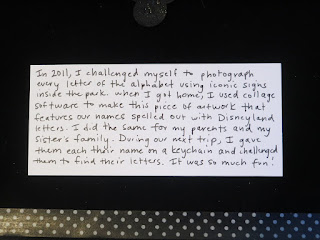 In 2011, I challenged myself to photograph
every letter of the alphabet using iconic signs
inside the park. When I got home, I used collage
software to make this piece of artwork that
features our names spelled out with Disneyland
letters. I did the same for my parents and my
sister's family. During our next trip, I gave
them each their name on a keychain and challenged
them to find their letters. It was so much fun!